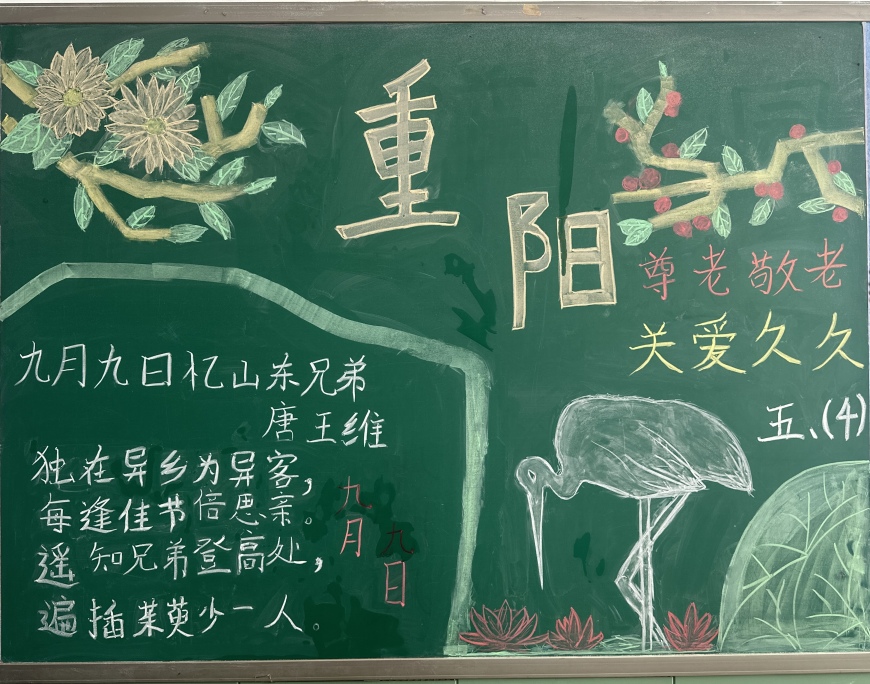 重
阳
尊老敬老
关爱久久
五、(4)
九月九日忆山东兄弟
唐 王维
独在异乡为异客，
每逢佳节倍思亲。
遥知兄弟登高处，
遍插茱萸少一人。
九月
九日